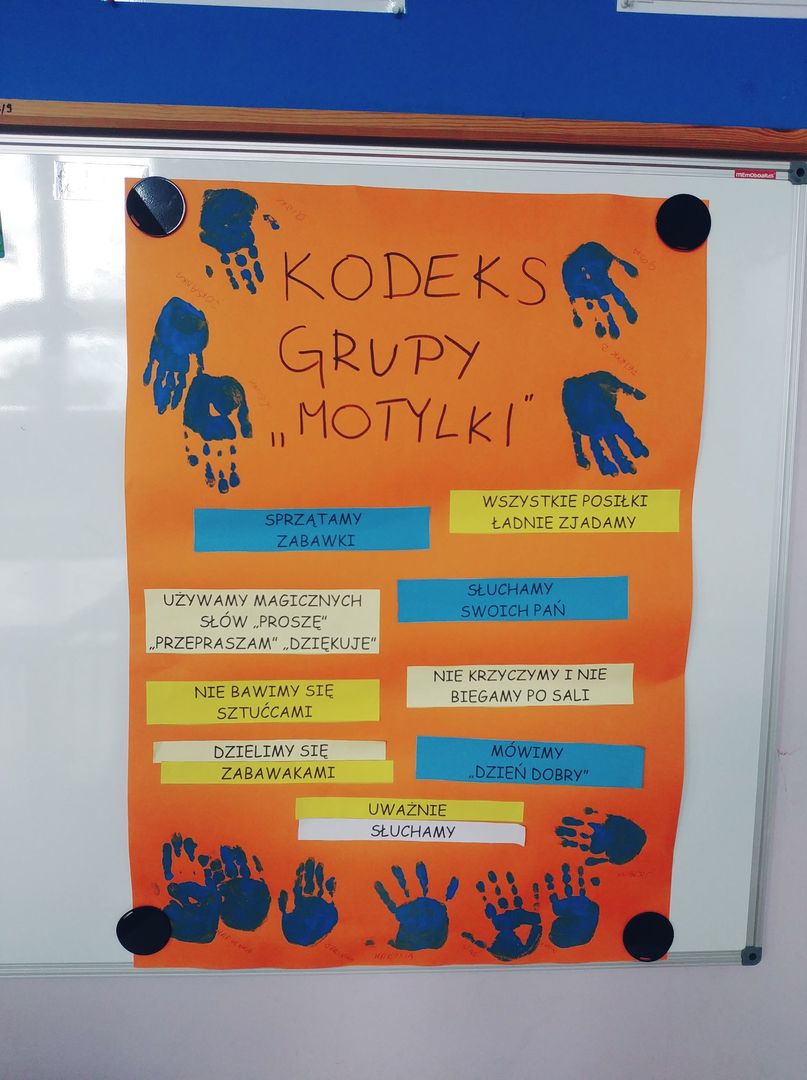 MEMOBOARDS
KODEKS
GRUPY
„MOTYLKI"
SPRZĄTAMY
ZABAWKI
WSZYSTKIE POSIŁKI
ŁADNIE ZJADAMY
UŻYWAMY MAGICZNYCH
SŁÓW „PROSZĘ"
„PRZEPRASZAM" „DZIĘKUJE"
SŁUCHAMY
SWOICH PAŃ
NIE BAWIMY SIĘ
SZTUĆCAMI
NIE KRZYCZYMY I NIE
BIEGAMY PO SALI
DZIELIMY SIĘ
ZABAWAKAMI
MÓWIMY
„DZIEŃ DOBRY"
UWAŻNIE
SŁUCHAMY